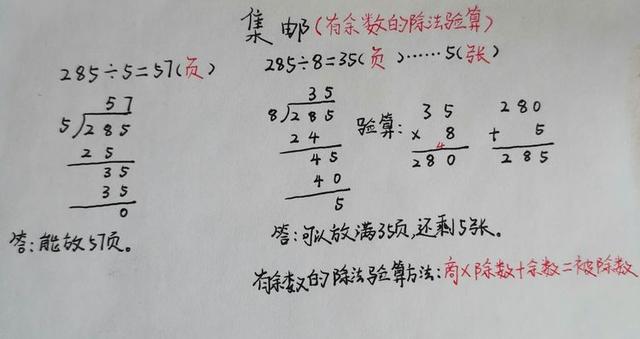 集邮(有余数的除法验算)
285÷5=57(页)
57
5 285
25
35
35
0
答:能放57页。
285÷8=35(页)……5(张)
35
8 285
24
45
40
5
验算:
35
× 8
4
280
280
+ 5
285
答:可以放满35页,还剩5张。
有余数的除法验算方法:商×除数+余数=被除数